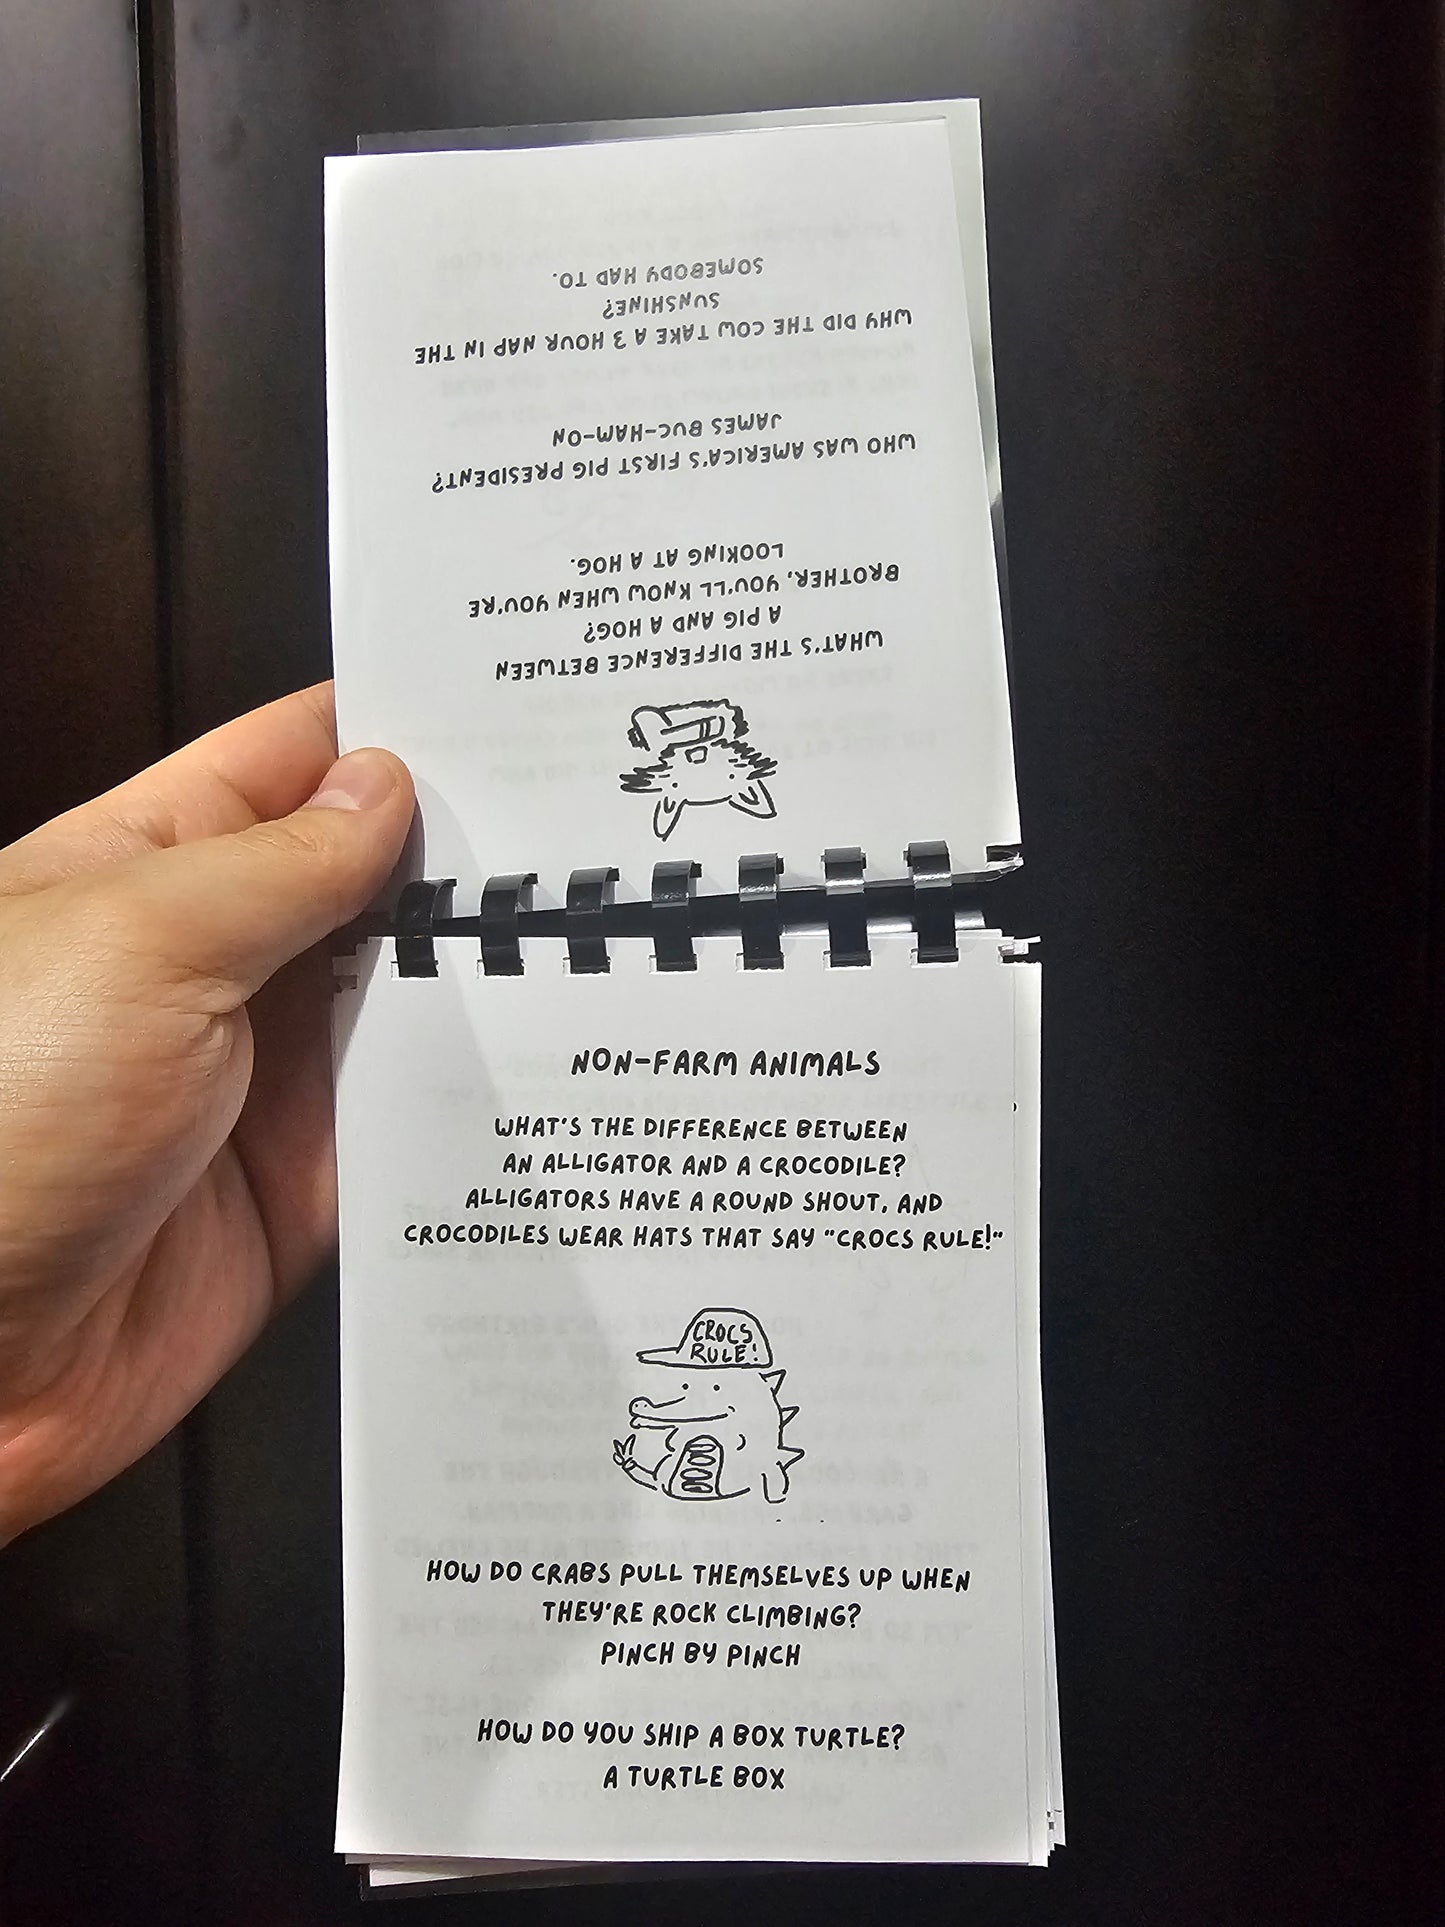 WHAT'S THE DIFFERENCE BETWEEN
A PIG AND A HOG?
BROTHER, YOU'LL KNOW WHEN YOU'RE
LOOKING AT A HOG.
WHO WAS AMERICA'S FIRST PIG PRESIDENT?
JAMES BUC-HAM-ON
WHY DID THE COW TAKE A 3 HOUR NAP IN THE
SUNSHINE?
SOMEBODY HAD TO.
NON-FARM ANIMALS
WHAT'S THE DIFFERENCE BETWEEN
AN ALLIGATOR AND A CROCODILE?
ALLIGATORS HAVE A ROUND SHOUT, AND
CROCODILES WEAR HATS THAT SAY "CROCS RULE!"
CROCS
RULE!
HOW DO CRABS PULL THEMSELVES UP WHEN
THEY'RE ROCK CLIMBING?
PINCH BY PINCH
HOW DO YOU SHIP A BOX TURTLE?
A TURTLE BOX